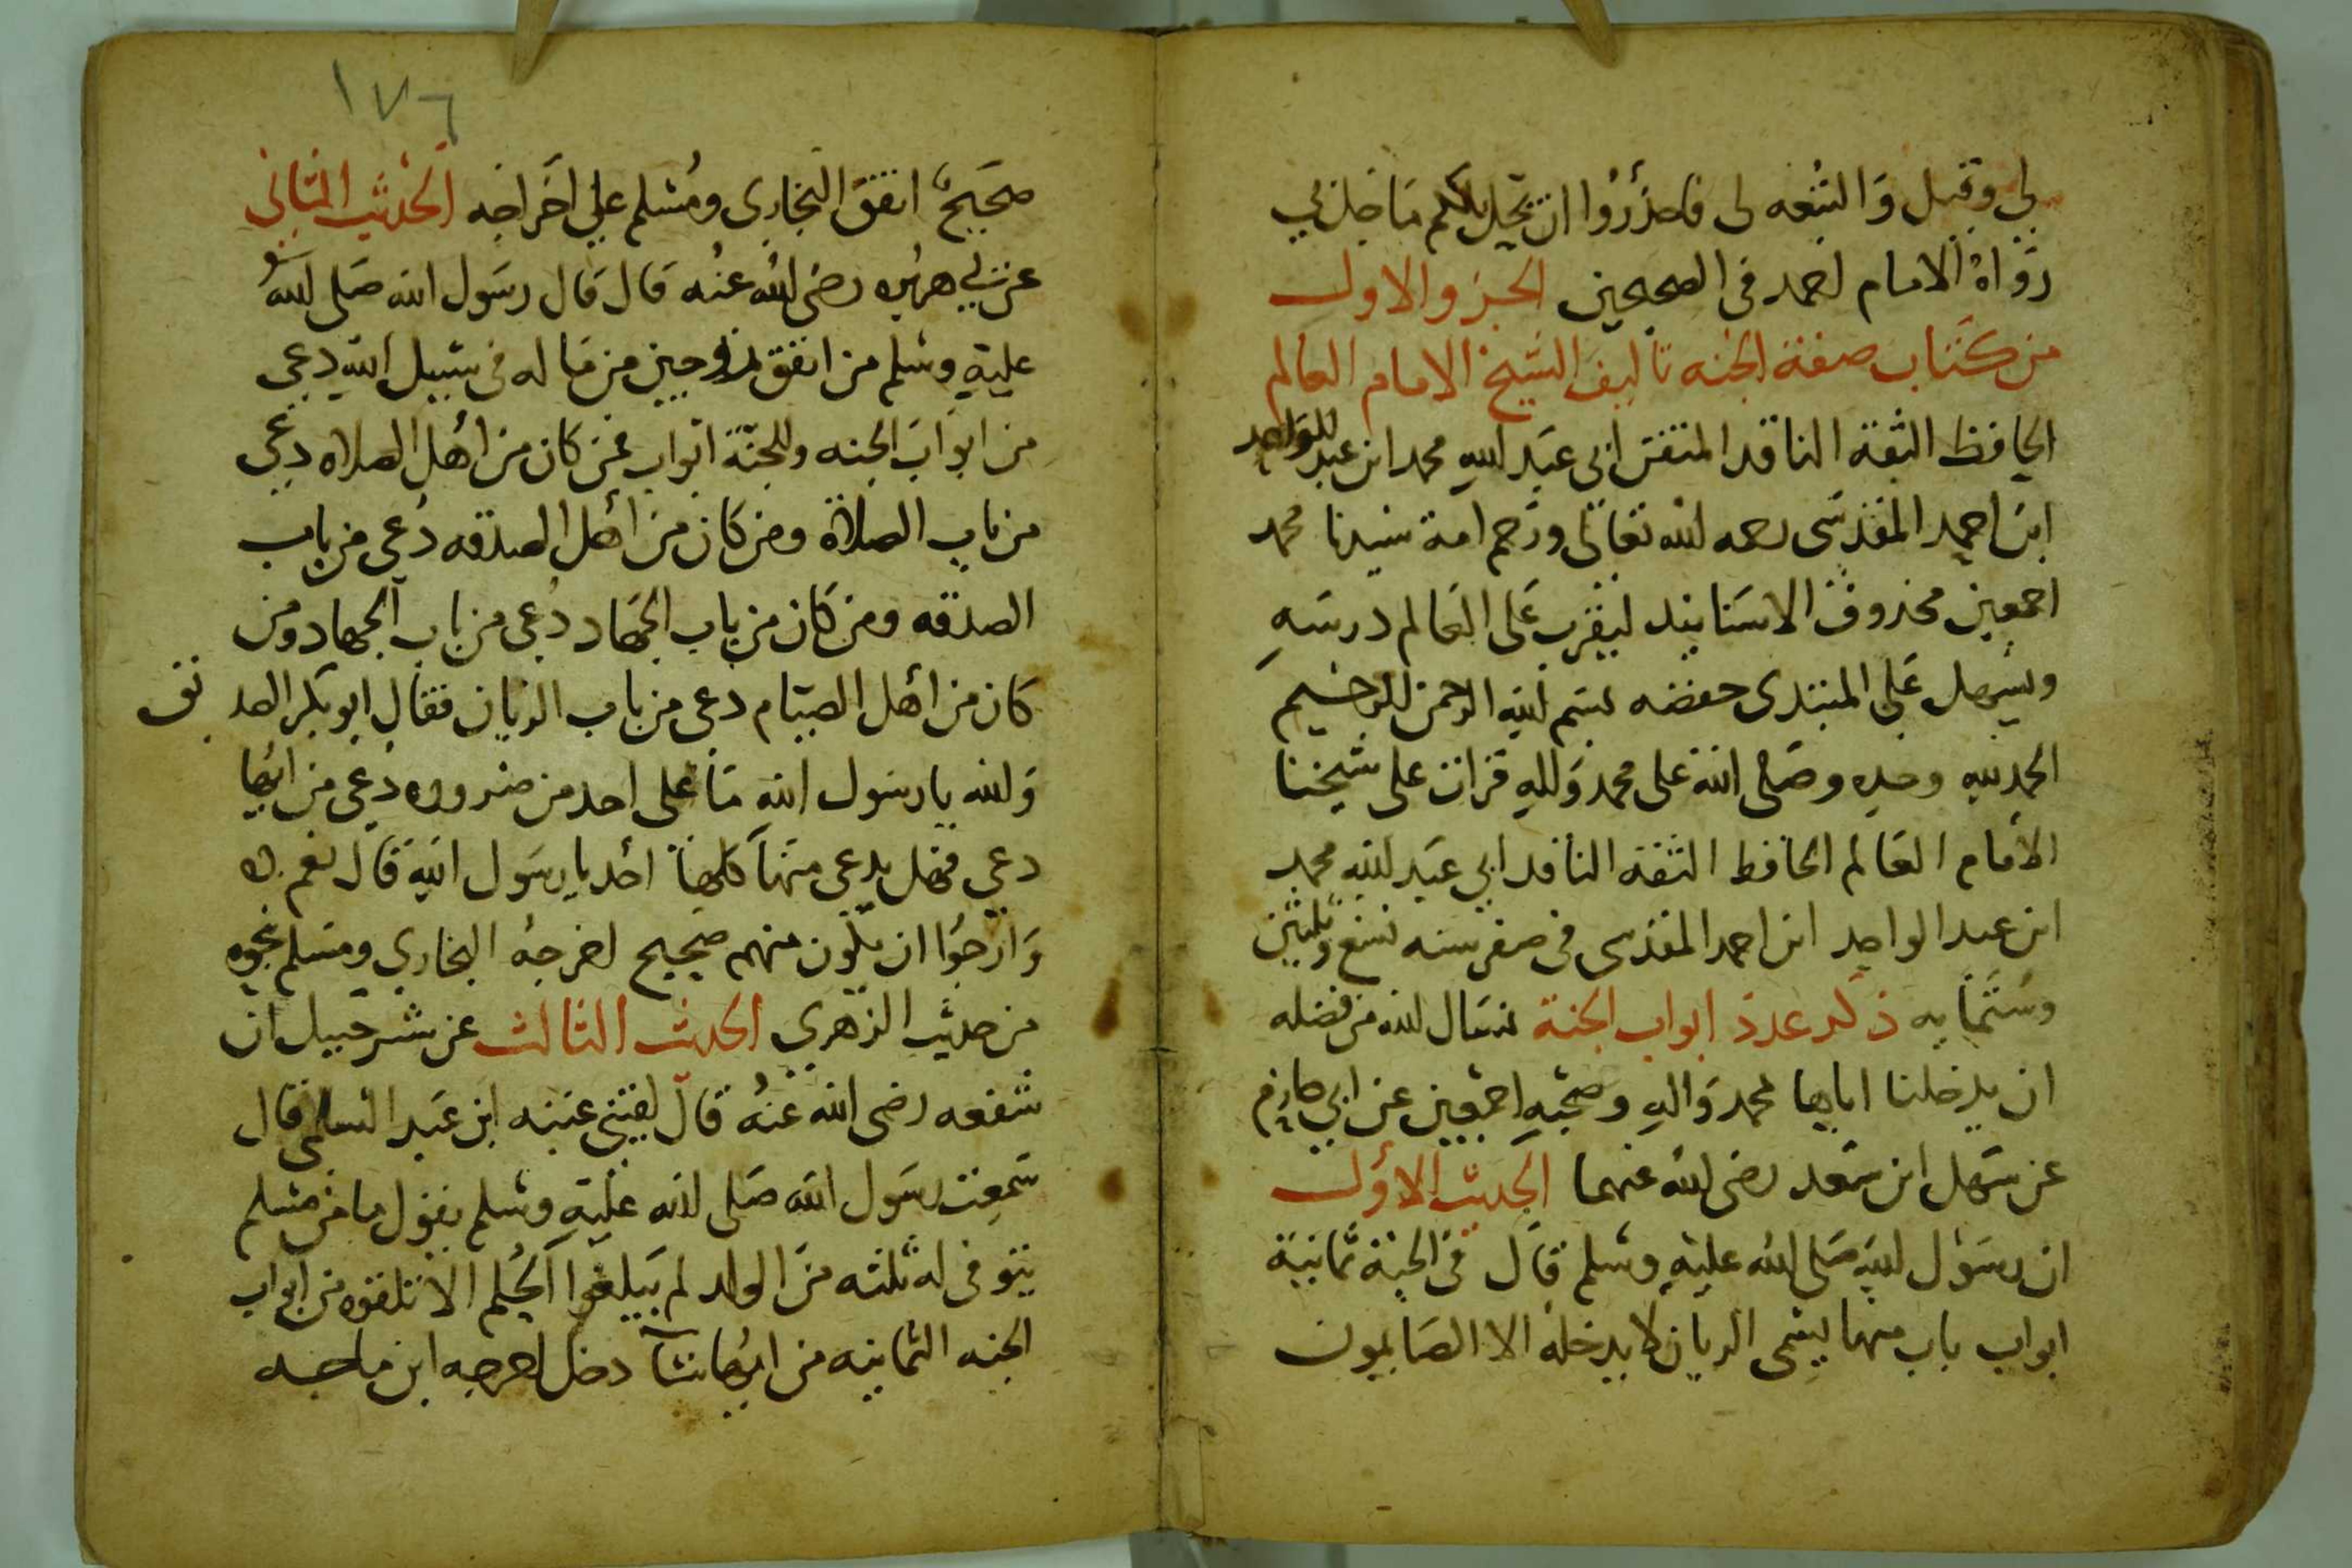 لي وقيل والتبعه لى فاحذروا ان يحل بكم ما حل بي
رواه الامام احمد فى الصحيحين الجزو الاول
من كتاب صفة الجنه تاليف الشيخ الامام العالم
الحافظ الثقة الناقد المتقن ابى عبد الله محمد ابن عبد الواحد
ابن احمد المقدسى رحمه الله تعالى ورحم امة سيدنا محمد
اجمعين محذوف الاسنانيد ليقرب على العالم درسه
ويسهل على المبتدى حفضه بسم الله الرحمن الرحيم
الحمد لله وحده وصلى الله على محمد واله قرات على شيخنا
الامام العالم الحافظ الثقة الناقد ابي عبد الله محمد
ابن عبد الواحد ابن احمد المقدسى فى صفر سنه تسع وثلثين
وستمايه ذكر عدد ابواب الجنة نسال الله من فضله
ان يدخلنا اياها بمحمد واله وصحبه اجمعين عن ابي حازم
عن سهل ابن سعد رضى الله عنهما الحديث الاول
ان رسول الله صلى الله عليه وسلم قال فى الجنة ثمانية
ابواب باب منها يسمى الريان لا يدخله الا الصايمون
١٧٦
صحيح اتفق البخارى ومسلم على اخراجه الحديث الثانى
عن ابي هريره رضى الله عنه قال قال رسول الله صلى الله
عليه وسلم من انفق زوجين من ماله فى سبيل الله دعى
من ابواب الجنه وللجنة ابواب فمن كان من اهل الصلاه دعى
من باب الصلاة ومن كان من اهل الصدقه دعى من باب
الصدقه ومن كان من باب الجهاد دعى من باب الجهاد ومن
كان من اهل الصيام دعى من باب الريان فقال ابو بكر الصديق
والله يا رسول الله ما على احد من ضروره دعى من ايها
دعي فهل يدعى منها كلها احد يا رسول الله قال نعم
وارجوا ان تكون منهم صحيح اخرجه البخاري ومسلم بنحوه
من حديث الزهري الحديث الثالث عن شرحبيل ابن
شفعه رضى الله عنه قال لقينى عتبه ابن عبد السلمى قال
سمعت رسول الله صلى الله عليه وسلم يقول ما من مسلم
يتوفى له ثلثه من الولد لم يبلغوا الحلم الا تلقوه من ابواب
الجنه الثمانيه من ايها شا دخل اخرجه ابن ماجه